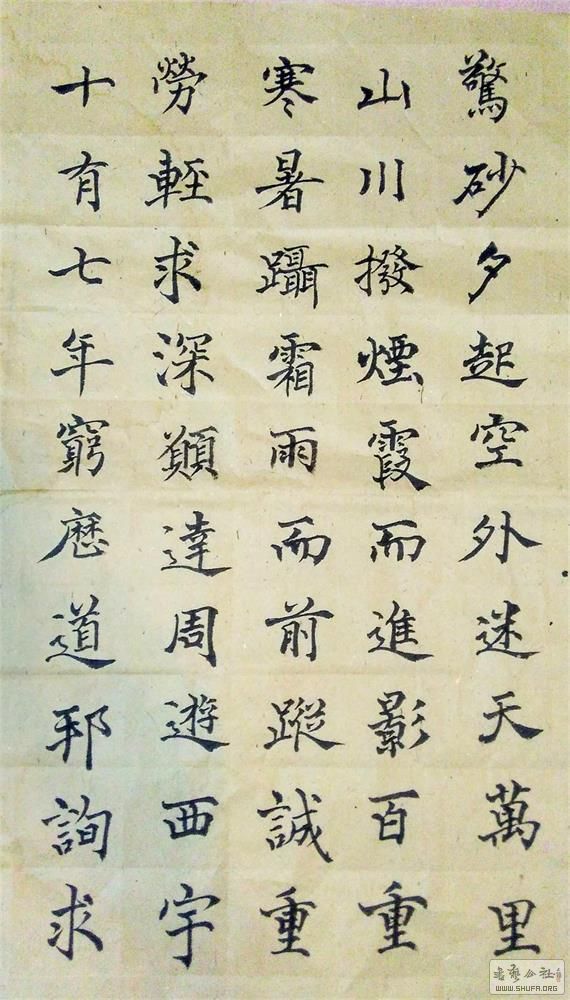 驚砂夕起空外迷天萬里
山川撥煙霞而進影百重
寒暑躡霜雨而前蹤誠重
勞輕求深願達周遊西宇
十有七年窮歷道邦詢求
书艺公社
WWW.SHUFA.ORG